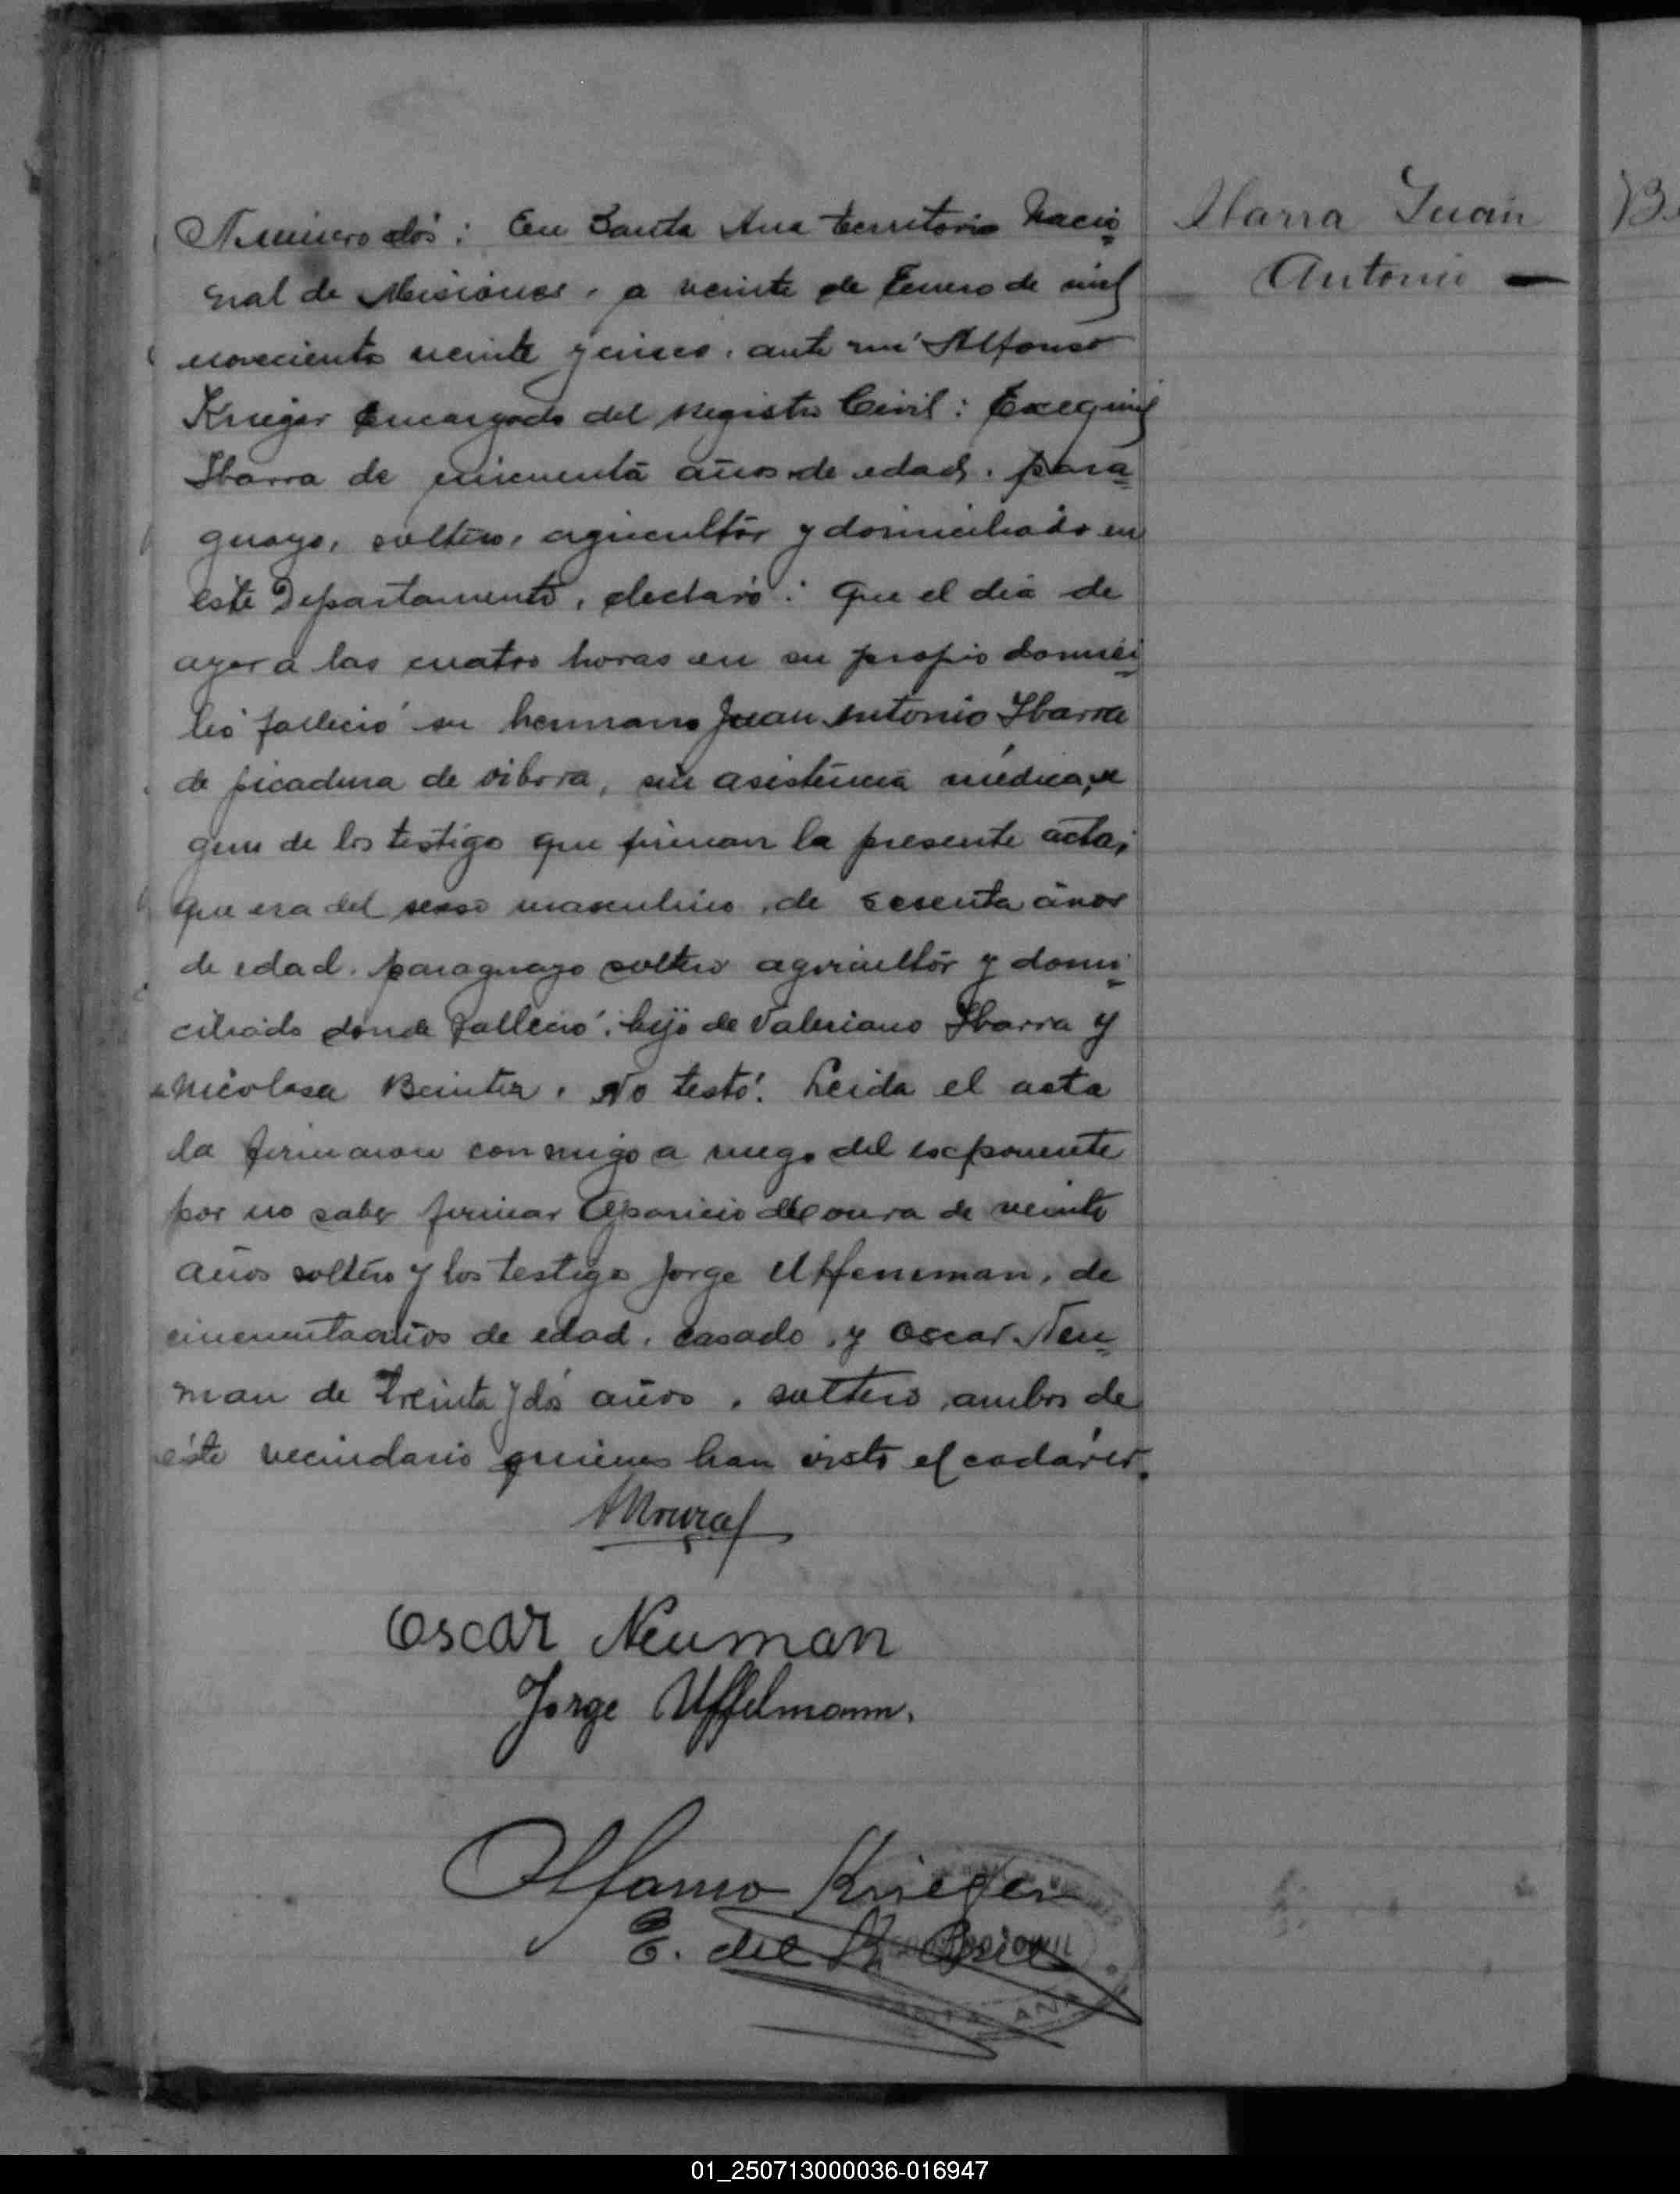 Ibarra Juan
Antonio —
Número dós: En Santa Ana territorio Nacio
nal de Misiones, a veinte de Enero de mil
novecientos veinte y cinco, ante mi Alfonso
Krieger Encargado del Registro Civil: Exequiel
Ibarra de cincuenta años de edad, para
guayo, soltero, agricultór y domiciliado en
este Departamento, declaró: Que el dia de
ayer a las cuatro horas en su propio domici
lió falleció su hermano Juan Antonio Ibarra
de picadura de vibora, sin asistencia médica, se
gun de los testigo que firman la presente acta,
que era del sexso masculino, de sesenta años
de edad, paraguayo soltero agricultór y domi
ciliado donde falleció: hijo de Valeriano Ibarra y
de Nicolasa . No testó. Leida el acta
la firmaron conmigo a ruego del exponente
por no saber firmar Aparicio Moura de veinte
años soltero y los testigo Jorge Uffenman, de
cincuenta años de edad, casado, y Oscar Neu
man de treinta y dós años, soltero, ambos de
éste vecindario quienes han visto el cadáver.
AMoura
Oscar Neuman
Jorge Uffelmann.
Alfonso Krieger
E. del R. Civil
SANTA ANA
01_250713000036-016947